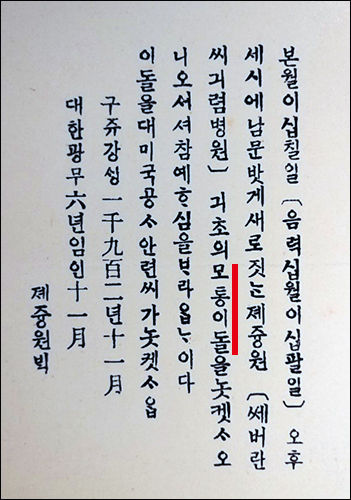 본월이십칠일 〔음력십월이십팔일〕 오후
세시에남문밧게새로짓ᄂᆞᆫ졔즁원 〔쎄버란
씨긔렴병원〕 긔초의모통이돌을놋켓ᄉᆞ오
니오셔셔참예ᄒᆞ심을ᄇᆞ라ᄋᆞᆸᄂᆞ이다
이돌을대미국공ᄉᆞ안련씨가놋켓ᄉᆞᄋᆞᆸ
구쥬강싱一千九百二년十一月
대한광무六년임인十一月
졔즁원빅